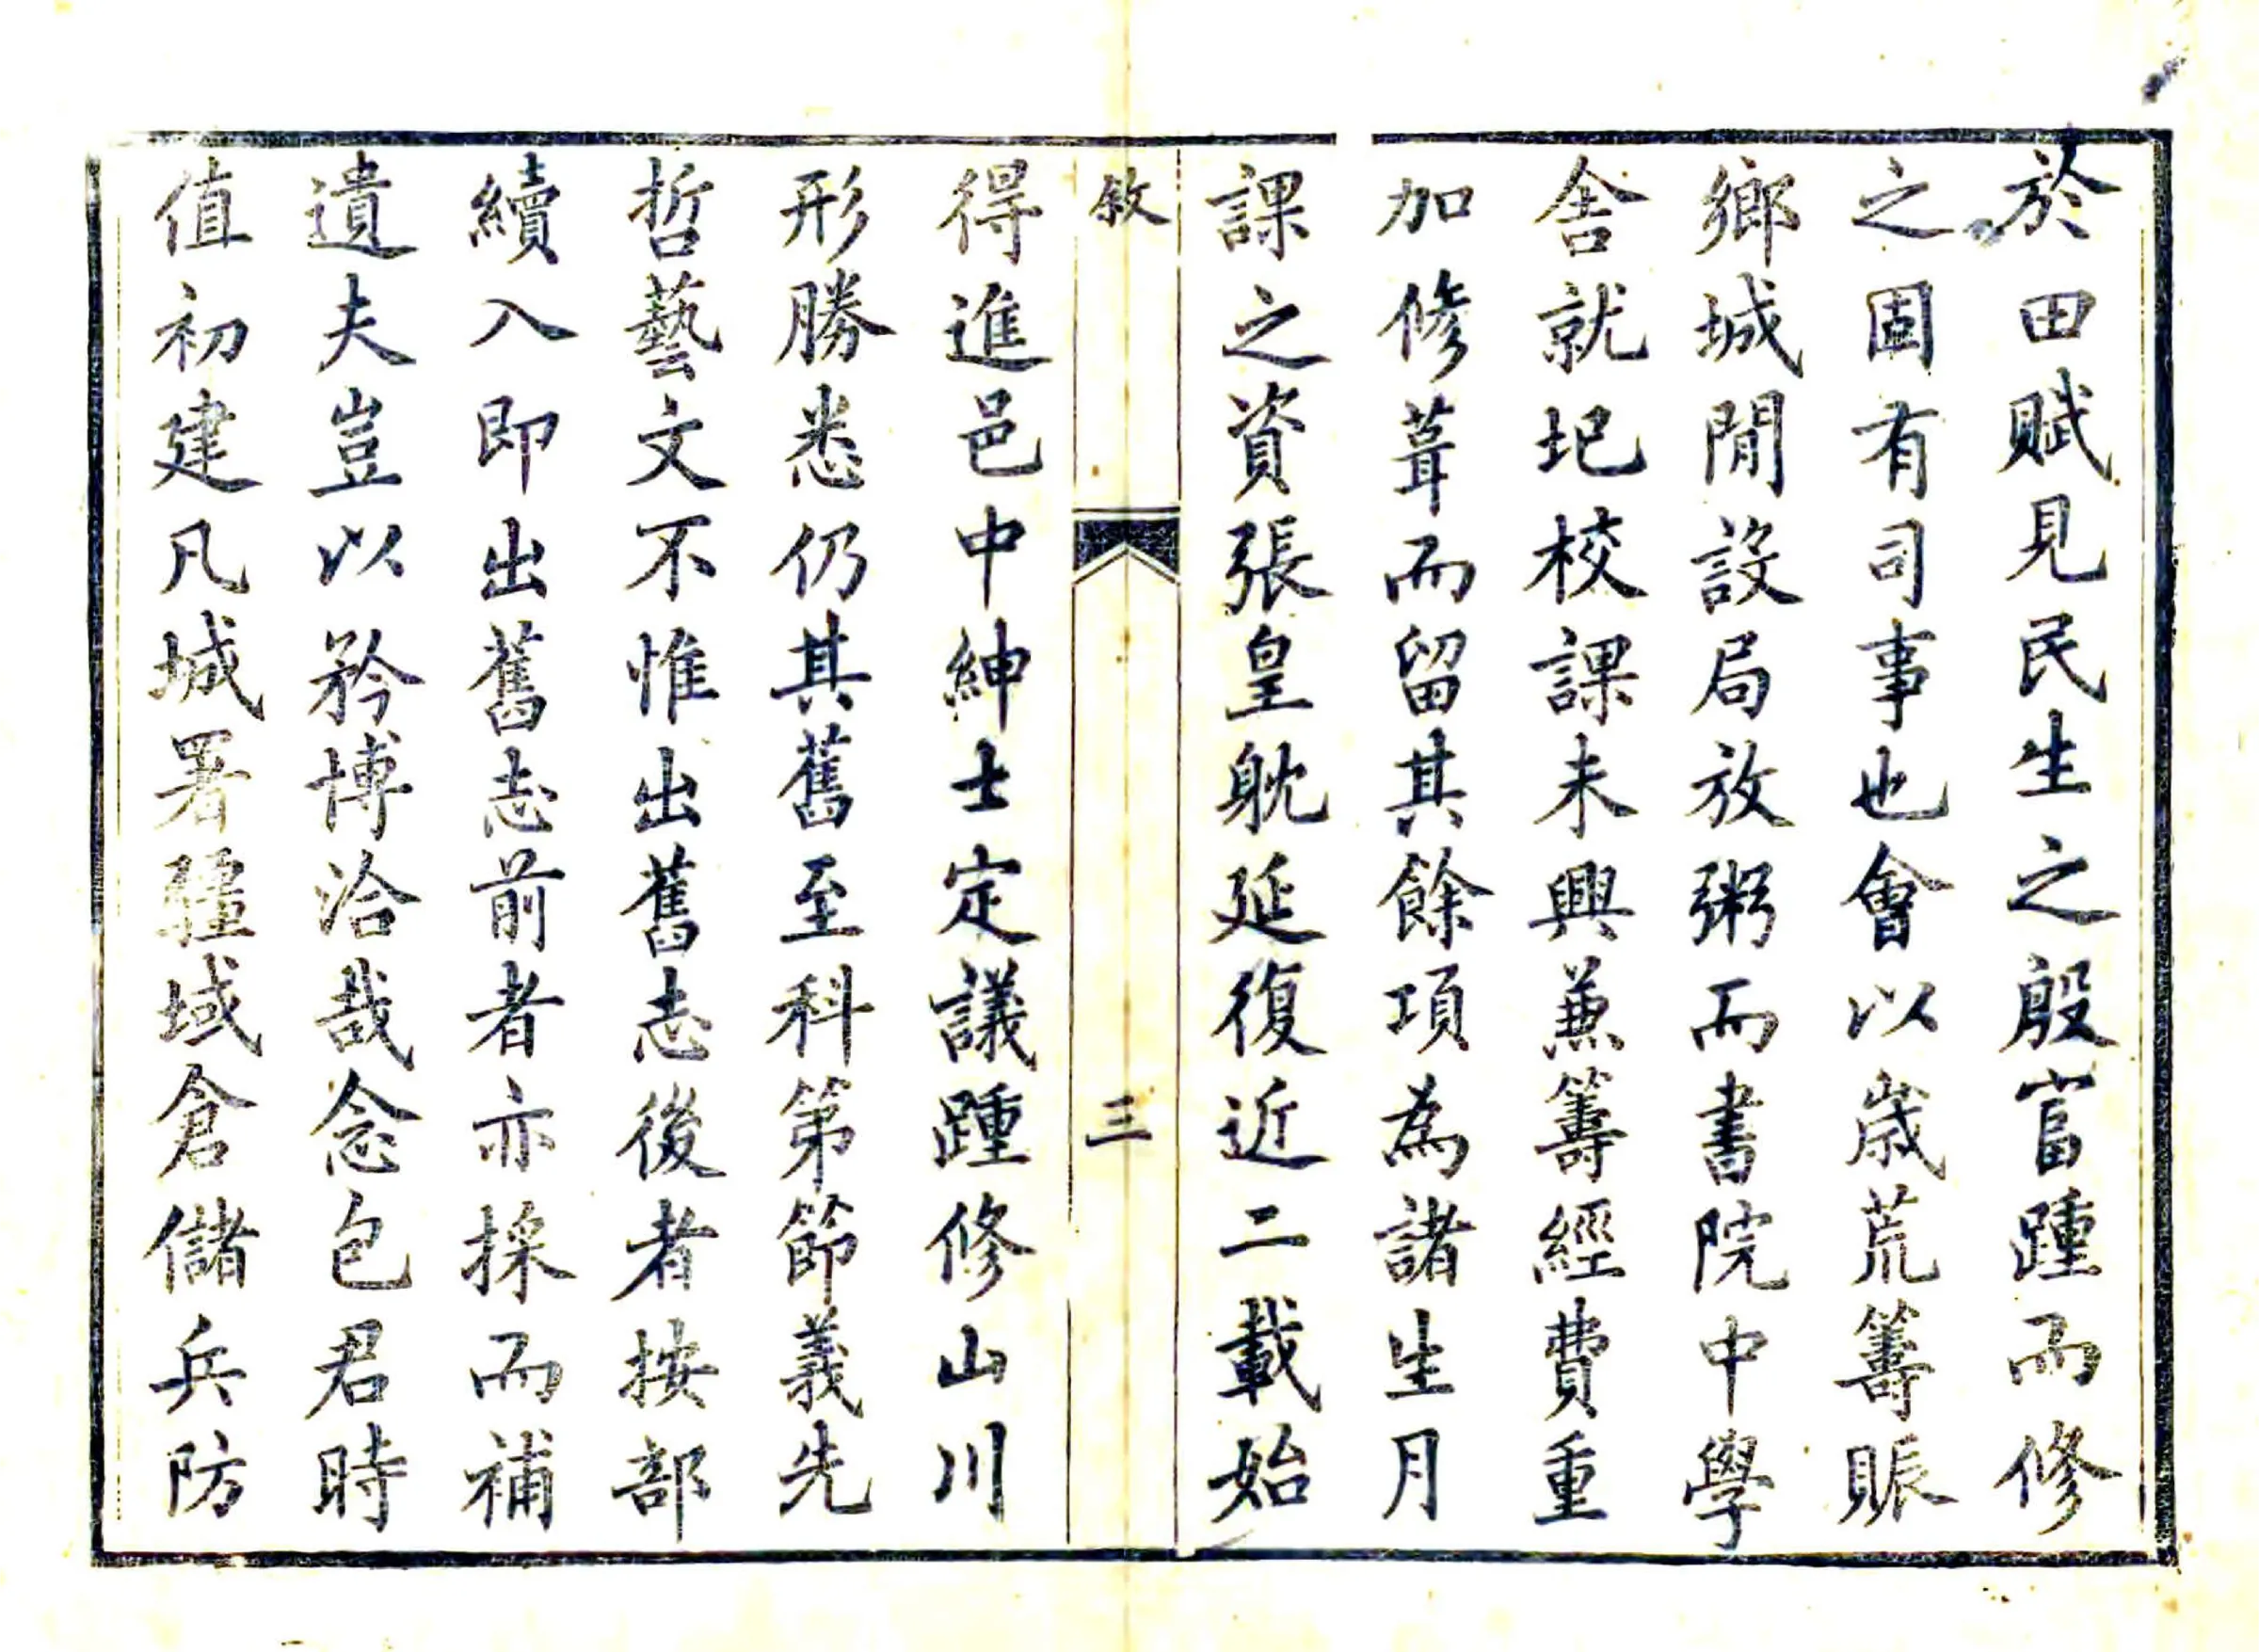 於田賦見民生之殷富踵而修
之固有司事也會以歲荒籌賑
鄉城閒設局放粥而書院中學
舍就圮校課未興兼籌經費重
加修葺而留其餘項為諸生月
課之資張皇躭延復近二載始
敘
三
得進邑中紳士定議踵修山川
形勝悉仍其舊至科第節義先
哲藝文不惟出舊志後者按部
續入即出舊志前者亦採而補
遺夫豈以矜博洽哉念包君時
值初建凡城署疆域倉儲兵防